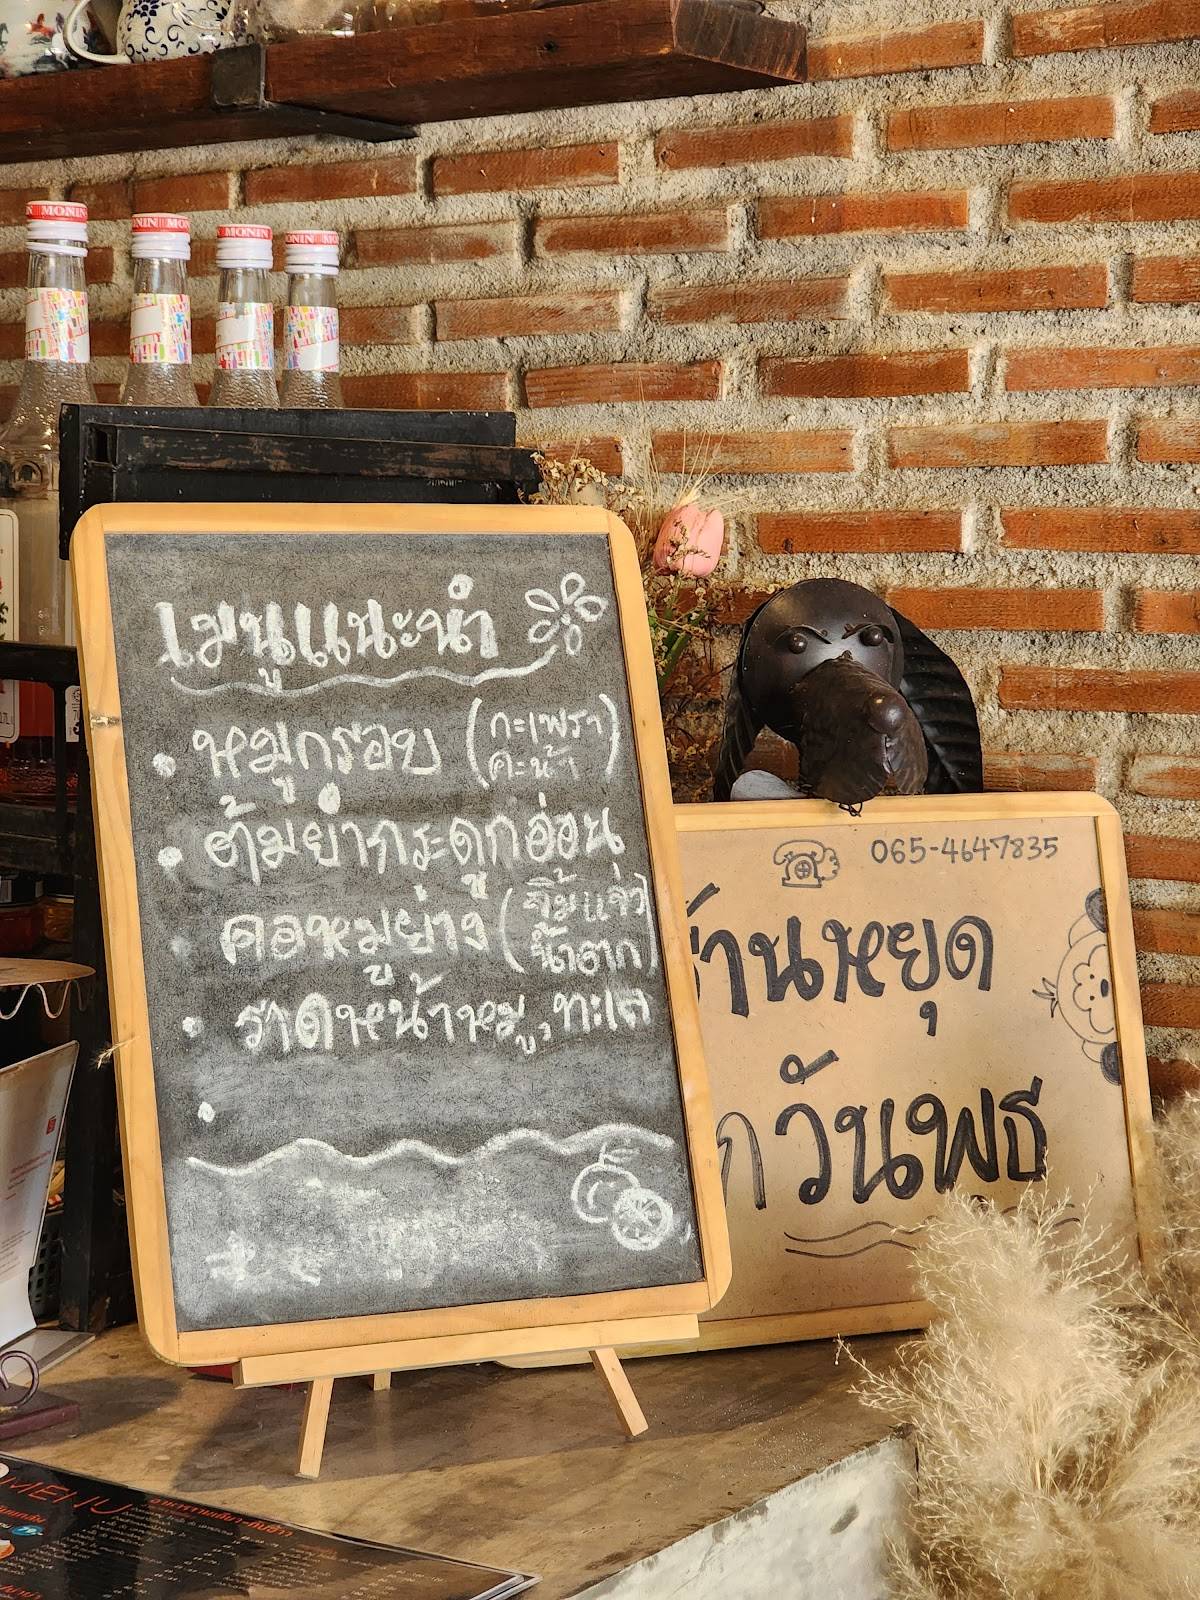 MONIN MONIN MONIN MONIN
เมนูแนะนำ
หมูกรอบ (กะเพรา
คะน้า)
ต้มยำกระดูกอ่อน
คอหมูย่าง (จิ้มแจ่ว
น้ำตก)
ราดหน้าหมู, ทะเล
065-4647835
ร้านหยุด
วันพุธ
MENU